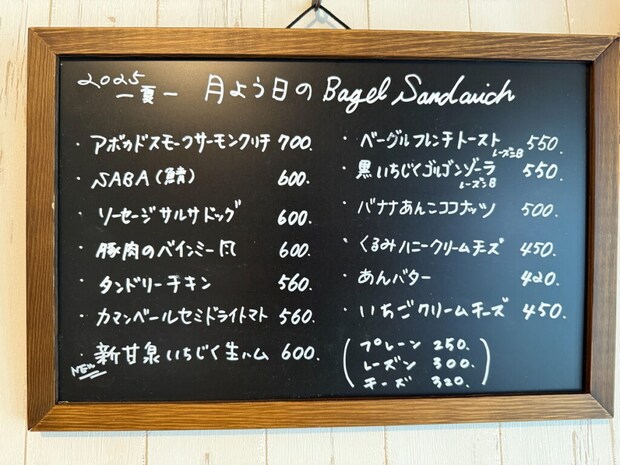 2025
ー夏ー 月よう日の Bagel Sandwich
・アボカドスモークサーモンクリチ 700.
・SABA(鯖) 600.
・ソーセージサルサドッグ 600.
・豚肉のバインミー風 600.
・タンドリーチキン 560.
・カマンベールセミドライトマト 560.
・新甘泉いちじく生ハム 600.
NEW
・ベーグルフレンチトースト 550.
レーズンB
・黒いちじくゴルゴンゾーラ 550.
レーズンB
・バナナあんこココナッツ 500.
・くるみハニークリームチーズ 450.
・あんバター 420.
・いちごクリームチーズ 450.
(プレーン 250.
レーズン 300.
チーズ 320.)